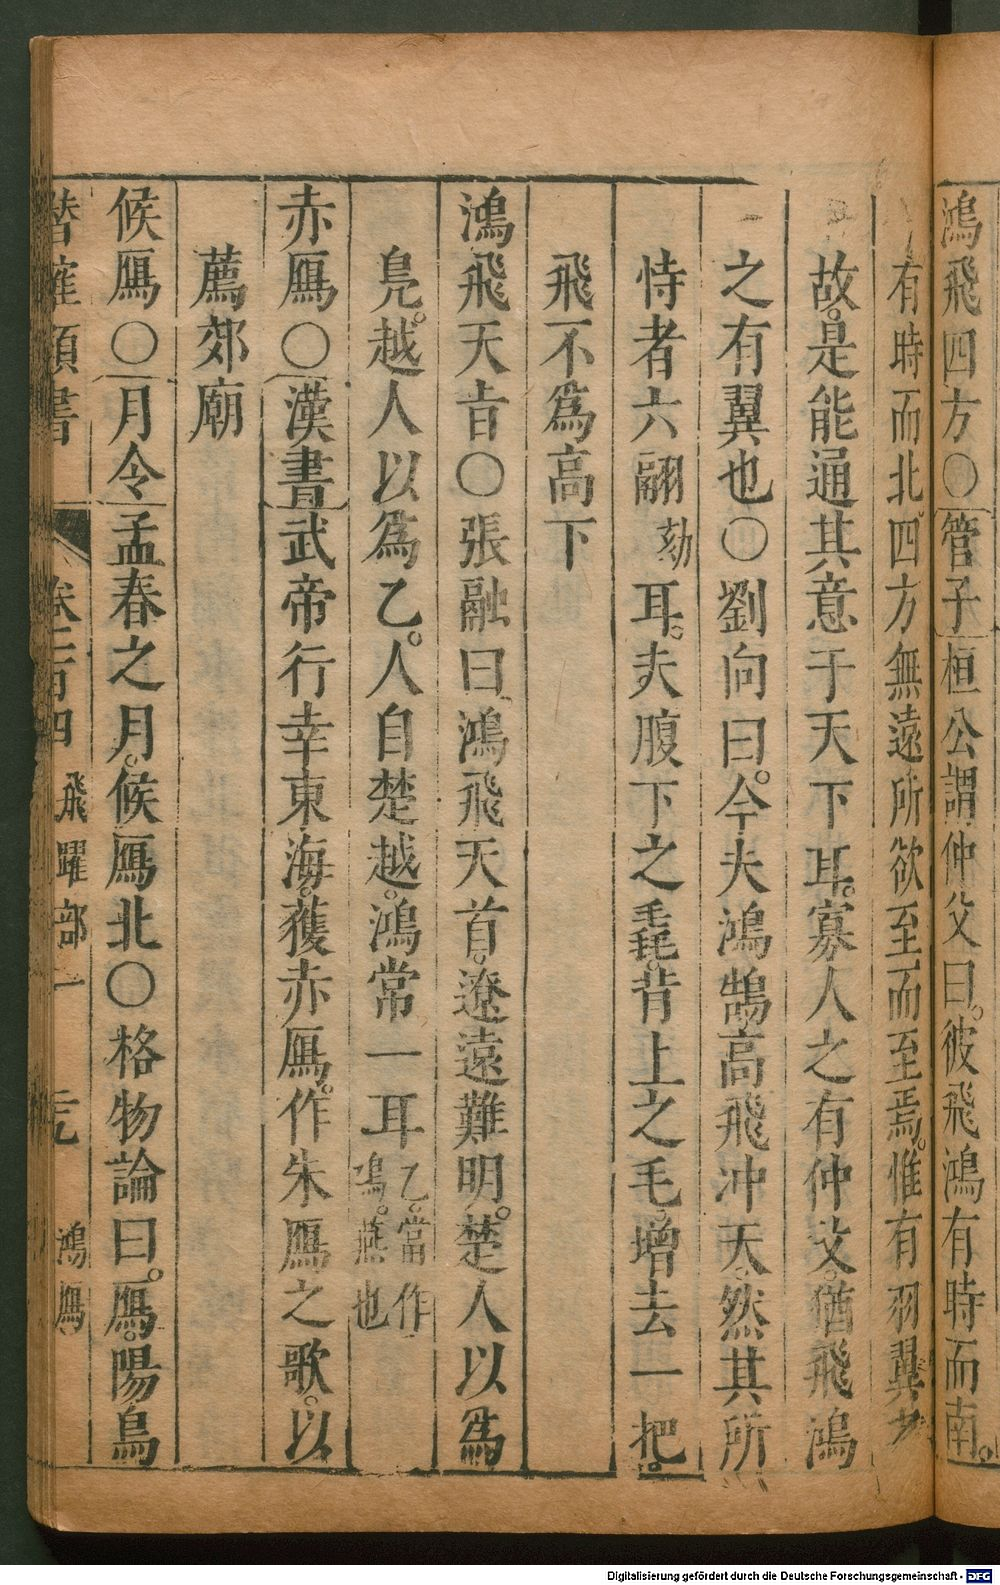 鴻飛四方〇管子桓公謂仲父曰。彼飛鴻有時而南。
有時而北。四方無遠所欲至而至焉。惟有羽翼之
故。是能通其意于天下耳。寡人之有仲父。猶飛鴻
之有翼也〇劉向曰。今夫鴻鵠高飛冲天。然其所
恃者六翮劾耳。夫腹下之毳。背上之毛增去一把。
飛不為高下
鴻飛天㫖〇張融曰鴻飛天首。遼遠難明。楚人以為
鳧。越人以為乙。人自楚越。鴻常一耳乙。當作鳦。燕也
赤鴈〇漢書武帝行幸東海。獲赤鴈。作朱鴈之歌。以
薦郊廟
候鴈〇月令孟春之月。候鴈北〇格物論曰。鴈。陽鳥
潛確類書 卷一百四 飛躍部一 元 鴻鴈
Digitalisierung gefördert durch die Deutsche Forschungsgemeinschaft - DFG